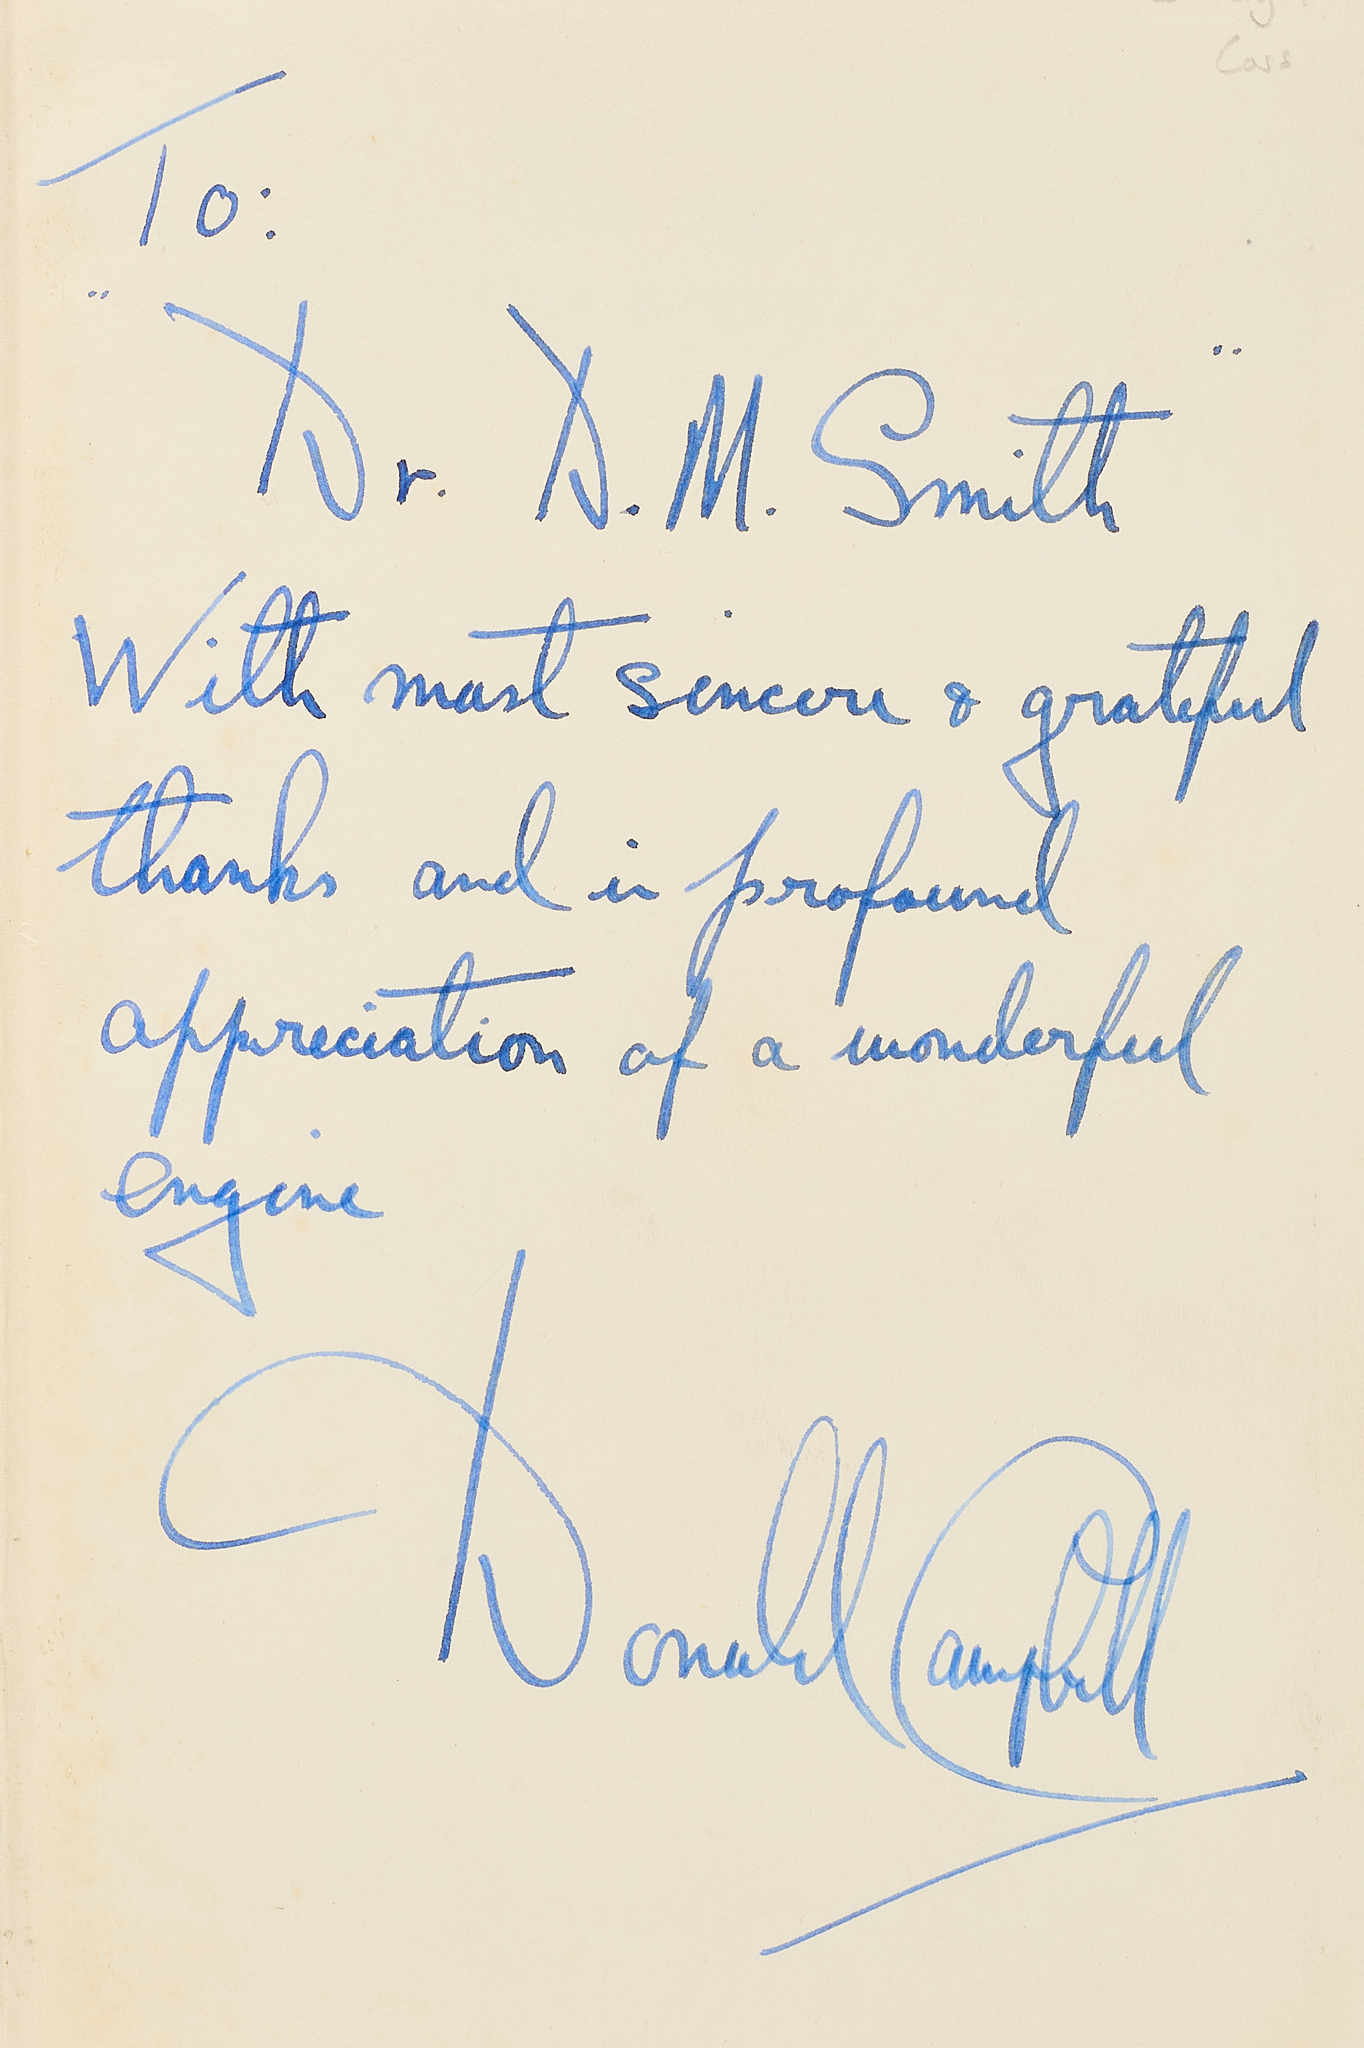 Cars
To:
" Dr. D. M. Smith "
With most sincere & grateful
thanks and in profound
appreciation of a wonderful
engine
Donald Campbell